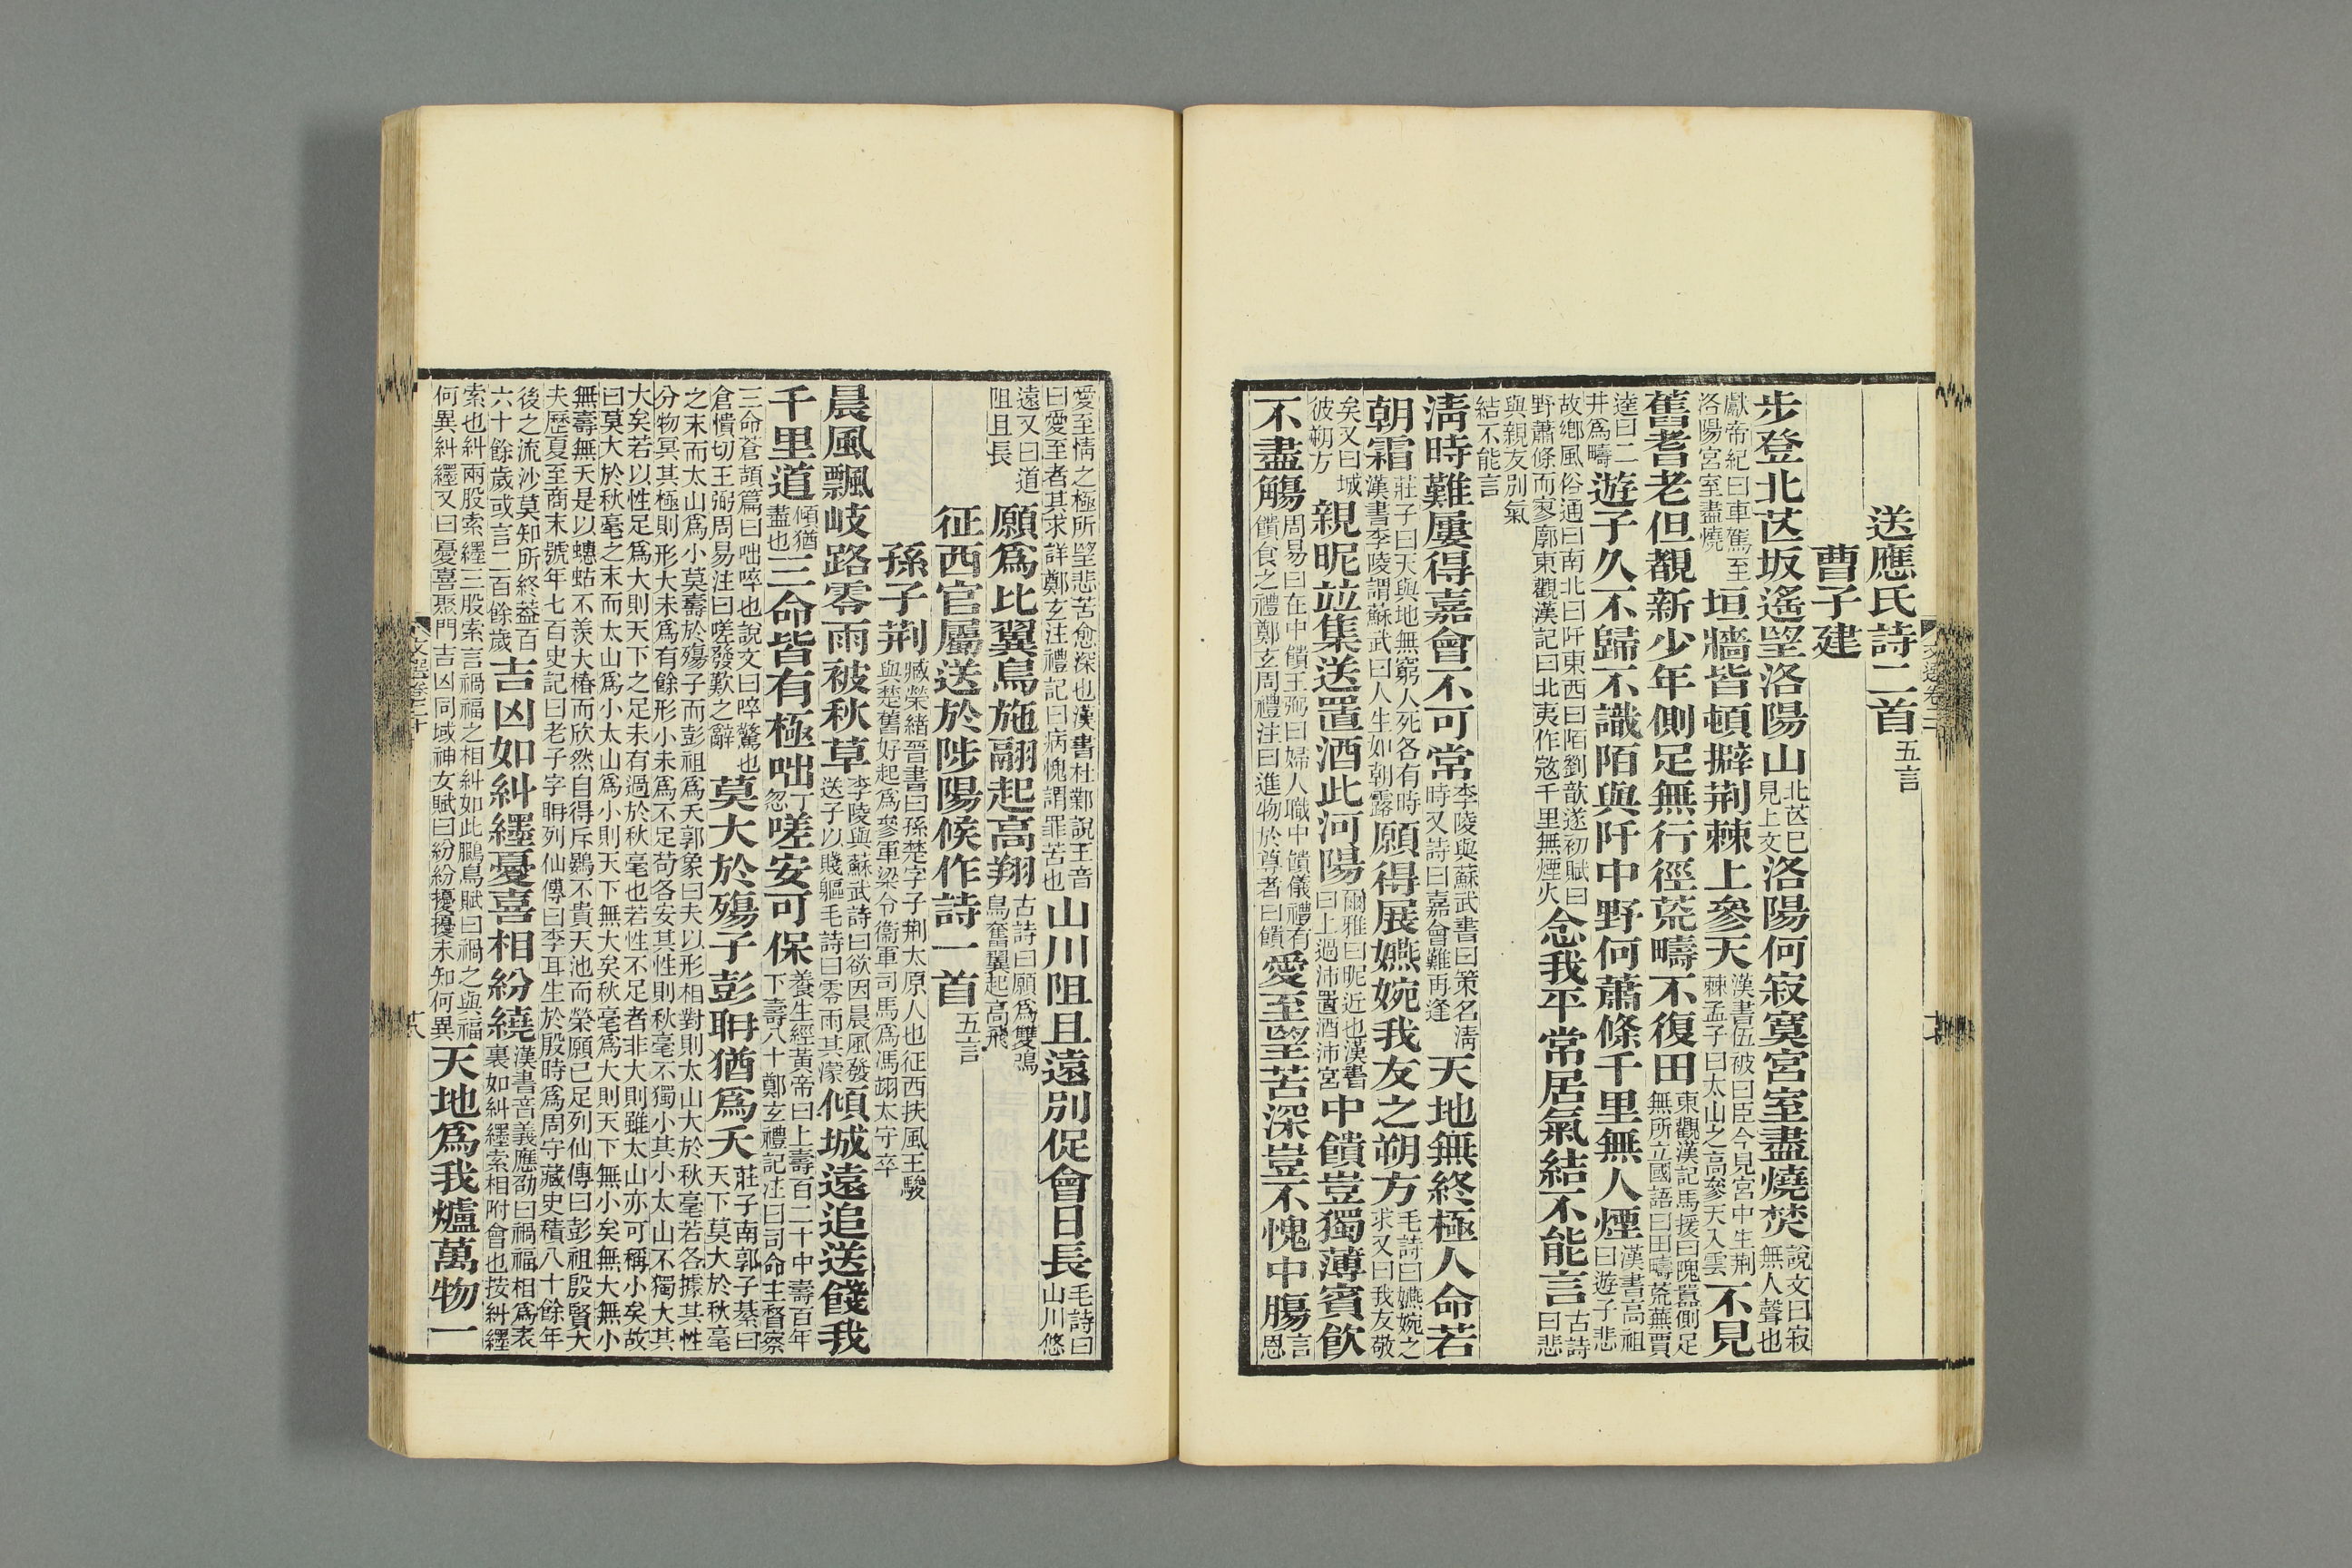 送應氏詩二首五言
曹子建
步登北芒坂遙望洛陽山北芒已見上文洛陽何寂寞宮室盡燒焚說文曰寂無人聲也
獻帝紀曰車駕至洛陽宮室盡燒垣牆皆頓擗荆棘上參天漢書伍被曰臣今見宮中生荆棘孟子曰太山之高參天入雲不見
舊耆老但覩新少年側足無行徑荒疇不復田東觀漢記馬援曰隗囂側足無所立國語曰田疇荒蕪賈
逵曰二井爲疇遊子久不歸不識陌與阡中野何蕭條千里無人煙漢書高祖曰遊子悲
故鄉風俗通曰南北曰阡東西曰陌劉歆遂初賦曰野蕭條而寥廓東觀漢記曰北夷作寇千里無煙火念我平常居氣結不能言古詩曰悲
與親友別氣結不能言
清時難屢得嘉會不可常李陵與蘇武書曰策名清時又詩曰嘉會難再逢天地無終極人命若
朝霜莊子曰天與地無窮人死各有時漢書李陵謂蘇武曰人生如朝露願得展嬿婉我友之朔方毛詩曰嬿婉之求又曰我友敬
矣又曰城彼朔方親昵竝集送置酒此河陽爾雅曰昵近也漢書曰上過沛置酒沛宮中饋豈獨薄賓飲
不盡觴周易曰在中饋王弼曰婦人職中饋儀禮有饋食之禮鄭玄周禮注曰進物於尊者曰饋愛至望苦深豈不愧中腸言恩
愛至情之極所望悲苦愈深也漢書杜鄴說王音曰愛至者其求詳鄭玄注禮記曰病愧謂罪苦也山川阻且遠別促會日長毛詩曰山川悠
遠又曰道阻且長願爲比翼鳥施翮起高翔古詩曰願爲雙鴻鳥奮翼起高飛
征西官屬送於陟陽候作詩一首五言
孫子荆臧榮緒晉書曰孫楚字子荆太原人也征西扶風王駿與楚舊好起爲參軍梁令衞軍司馬爲馮翊太守卒
晨風飄岐路零雨被秋草李陵與蘇武詩曰欲因晨風發送子以賤軀毛詩曰零雨其濛傾城遠追送餞我
千里道傾猶盡也三命皆有極咄丁忽嗟安可保養生經黃帝曰上壽百二十中壽百年下壽八十鄭玄禮記注曰司命主督察
三命蒼頡篇曰咄啐也說文曰啐驚也倉憒切王弼周易注曰嗟發歎之辭莫大於殤子彭聃猶爲夭莊子南郭子綦曰天下莫大於秋毫
之末而太山爲小莫壽於殤子而彭祖爲夭郭象曰夫以形相對則太山大於秋毫若各據其性分物冥其極則形大未爲有餘形小未爲不足苟各安其性則秋毫不獨小其小太山不獨大其
大矣若以性足爲大則天下之足未有過於秋毫也若性不足者非大則雖太山亦可稱小矣故曰莫大於秋毫之末而太山爲小太山爲小則天下無大矣秋毫爲大則天下無小矣無大無小
無壽無夭是以蟪蛄不羨大椿而欣然自得斥鷃不貴天池而榮願已足列仙傳曰彭祖殷賢大夫歷夏至商末號年七百史記曰老子字聃列仙傳曰李耳生於殷時爲周守藏史積八十餘年
後之流沙莫知所終葢百六十餘歲或言二百餘歲吉凶如糾纆憂喜相紛繞漢書音義應劭曰禍福相爲表裏如糾纆索相附會也按糾纆
索也糾兩股索纆三股索言禍福之相糾如此鵩鳥賦曰禍之與福何異糾纆又曰憂喜聚門吉凶同域神女賦曰紛紛擾擾未知何異天地爲我爐萬物一